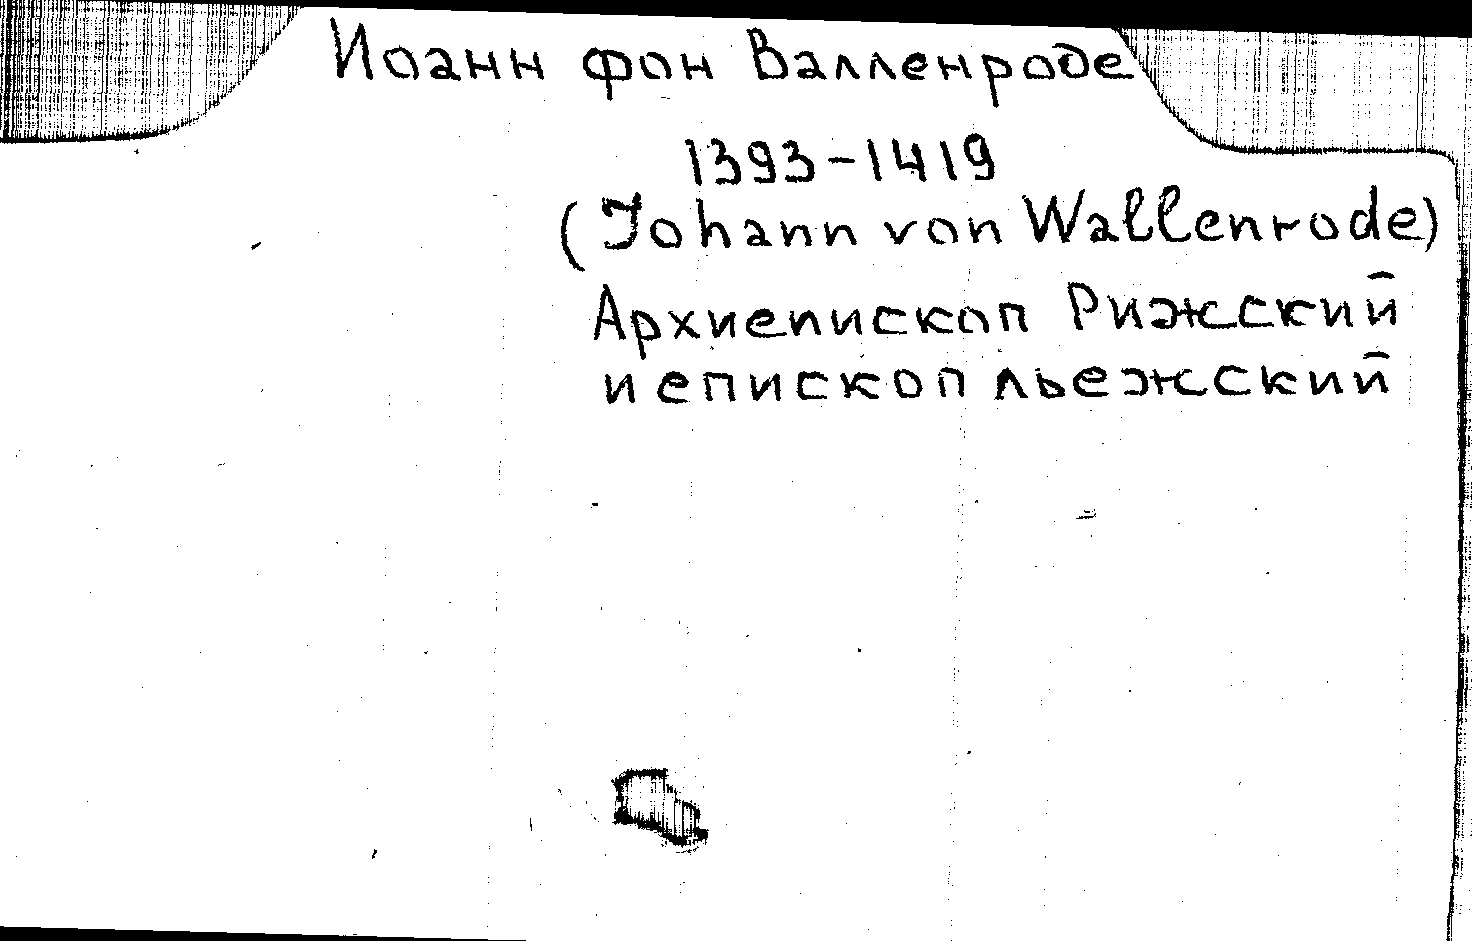 Иоанн фон Валленроде
1393-1419
(Johann von Wallenrode)
Архиепископ Рижский
и епископ льежский